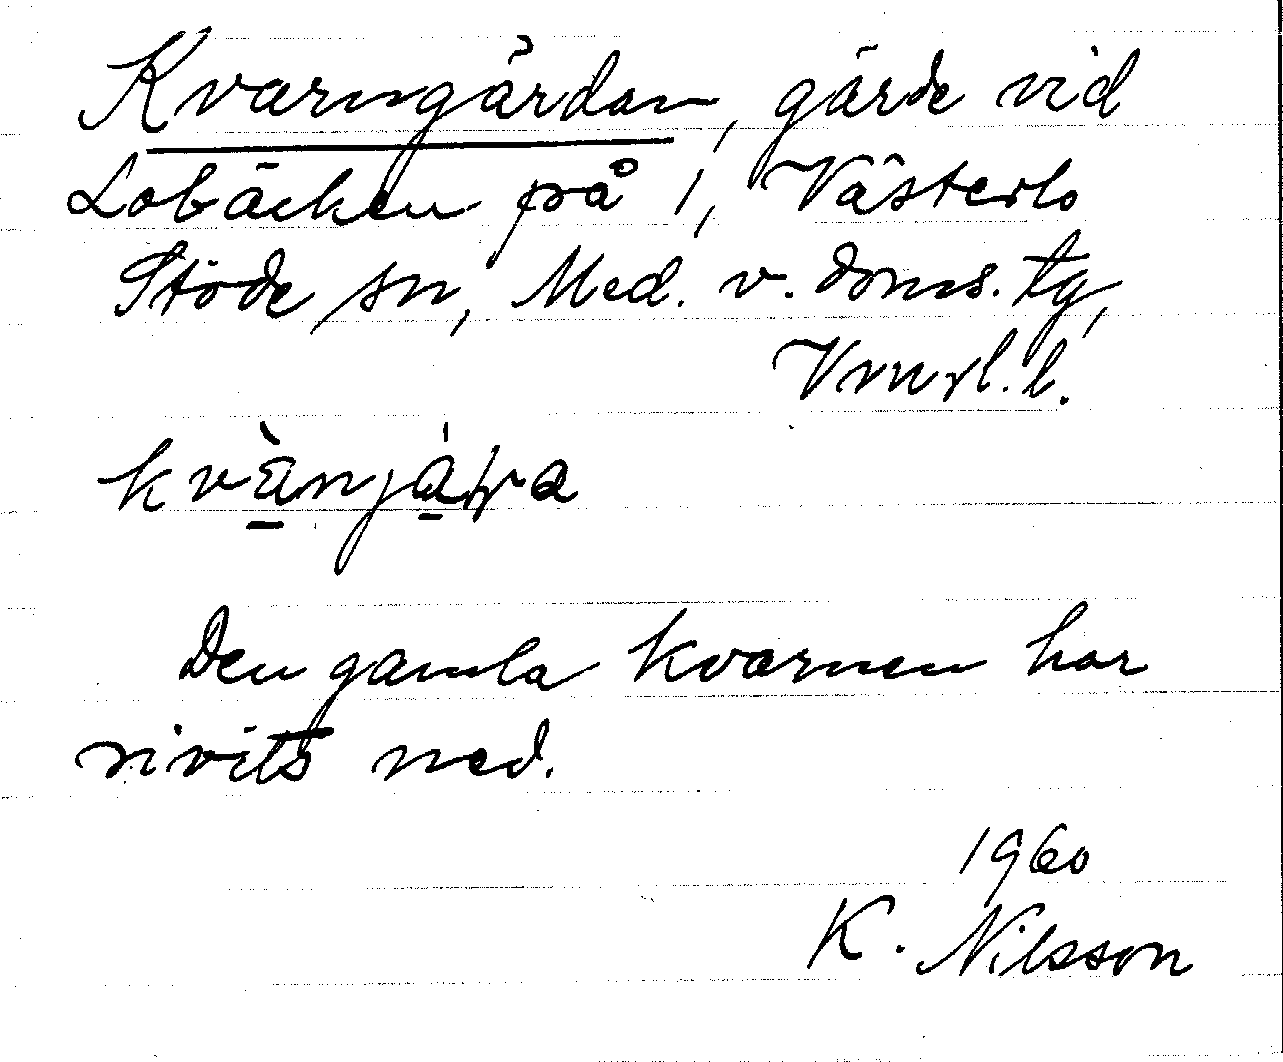 Kvarngärdan, gärde vid
Lobäcken på 1, Västerlo
Stöde sn, Med. v. doms. tg,
Vnrl. l.
Den gamla kvarnen har
rivits ned.
1960
K. Nilsson